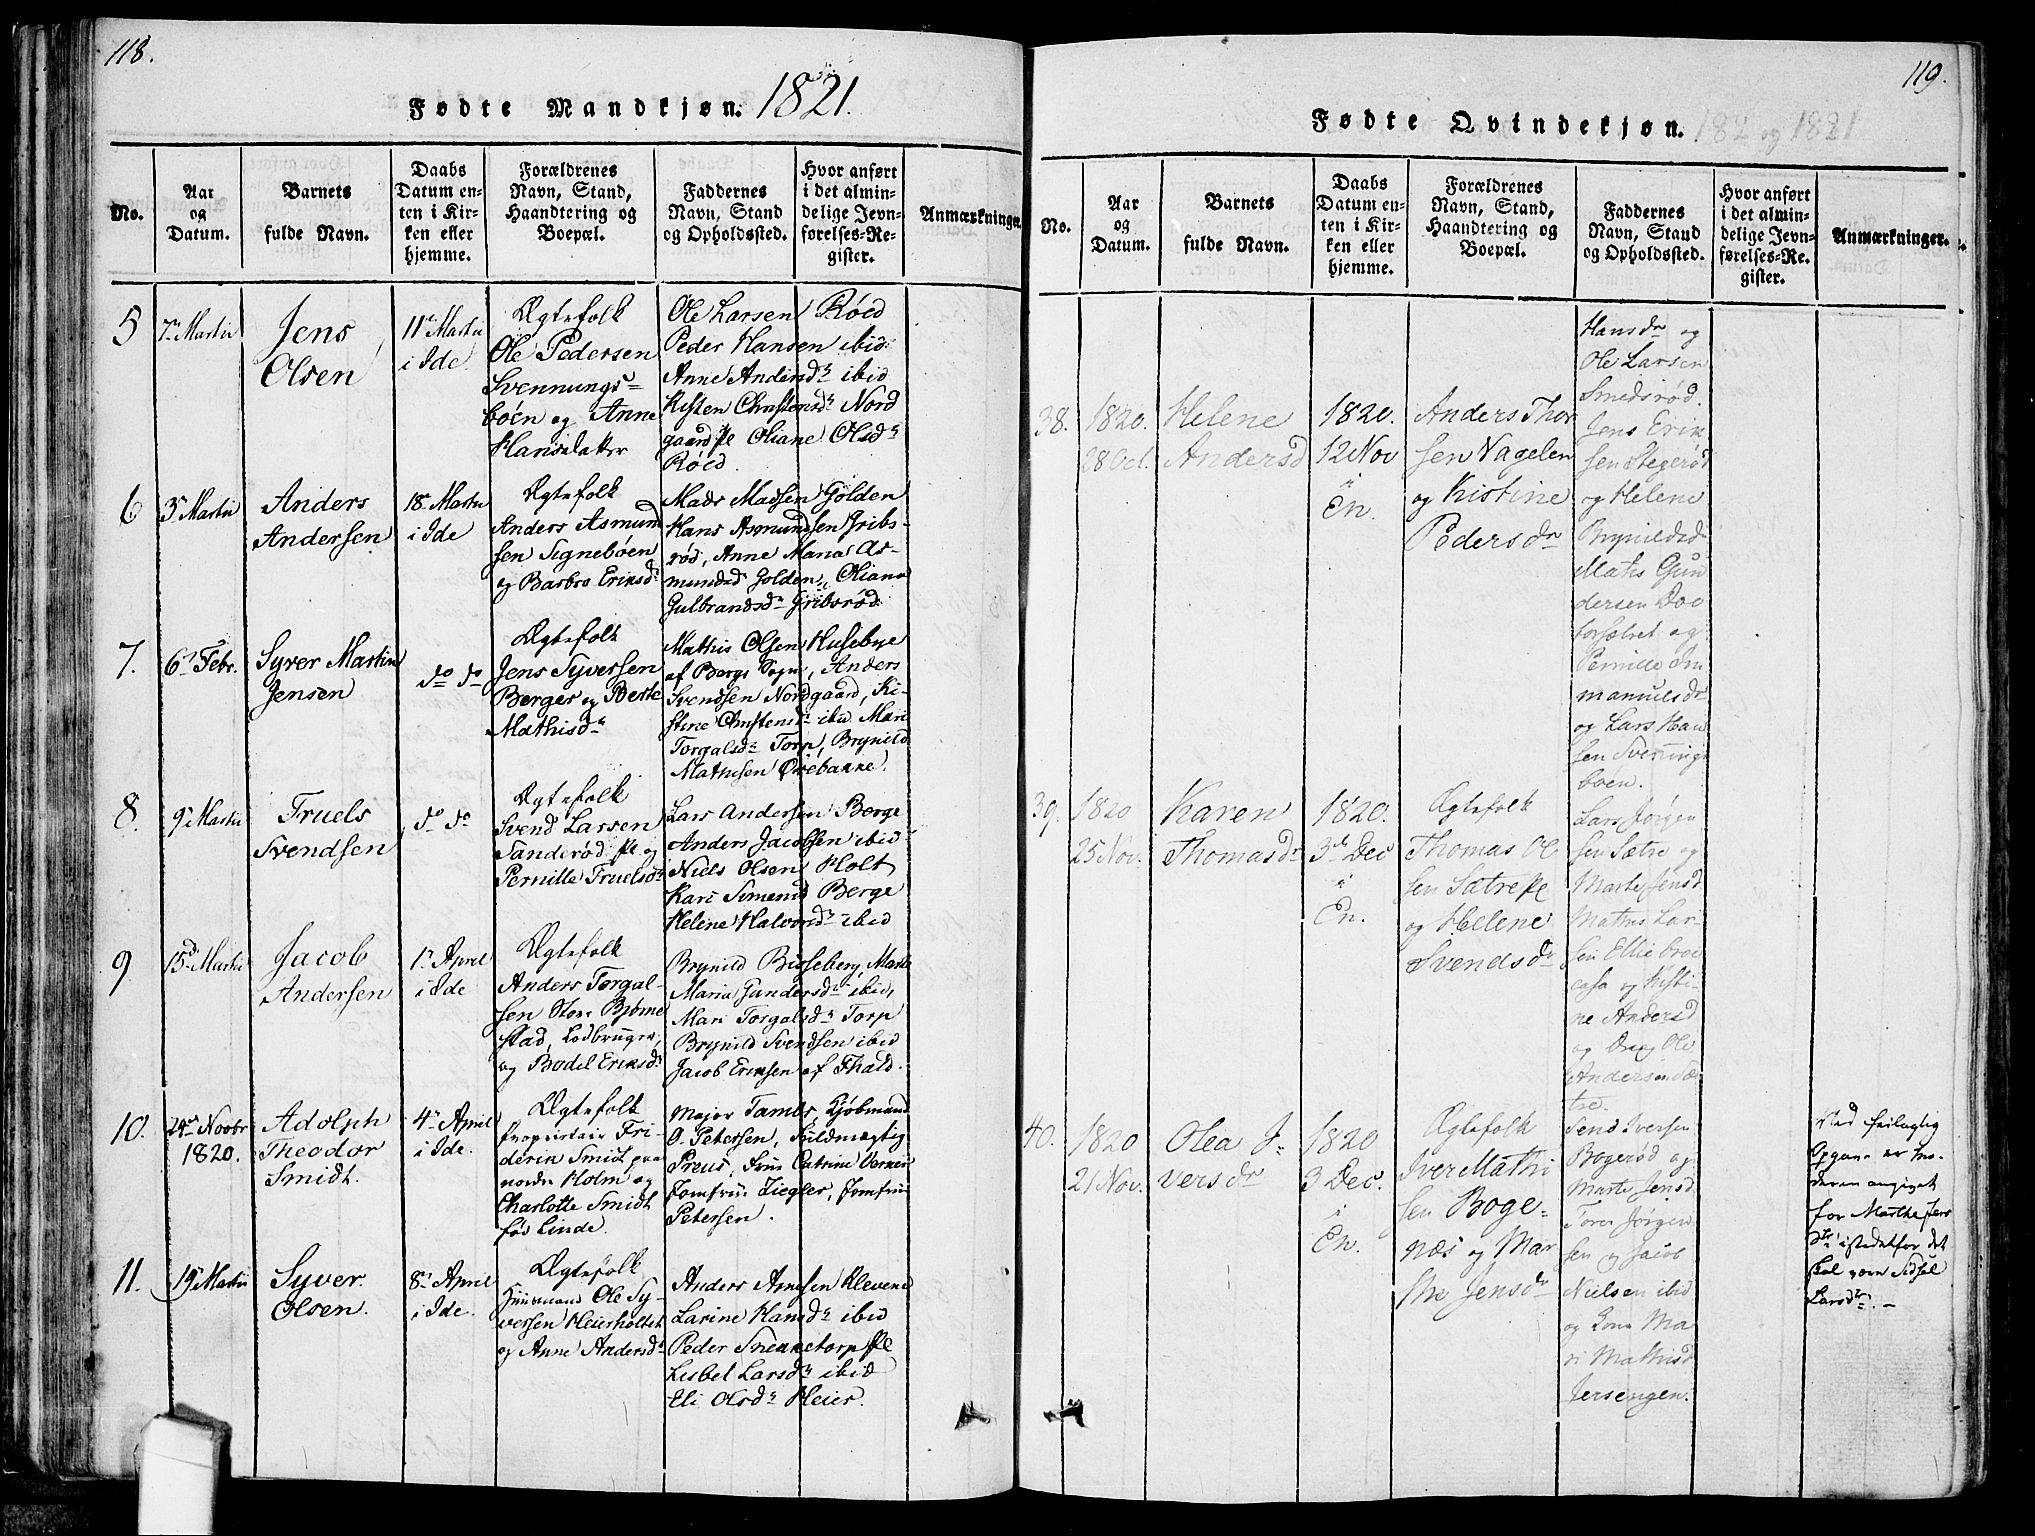 118.
Fødte Mandkjøn. 1821.
No.
Aar
og
Datum.
Barnets
fulde Navn.
Daabs
Datum en-
ten i Kir-
ken eller
hjemme.
Forældrenes
Navn, Stand,
Haandtering og
Boepæl.
Faddernes
Navn, Stand
og Opholdssted.
Hvor anført
i det almin-
delige Jevn-
førelses-Re-
gister.
Anmærkninger.
5
7de Martii
Jens
Olsen
11te Martii
i Ide.
Ægtefolk
Ole Pedersen
Svennungs-
böen og Anne
Hansdatter
Ole Larsen Röed
Peder Hansen ibid:
Anne Andersdr ibid
Kisten Christensdr Nord
gaard Pl Oliane Olsdr
Röed.
6
3de Martii
Anders
Andersen
18de Martii
i Ide
Ægtefolk
Anders Asmund
sen Signeböen
og Barbro Eriksdr
Mads Madsen Golden
Hans Asmundsen Gribs-
rød, Anne Maria As-
mundsd Golden, Oliana
Gulbrandsdr Gribsrød.
7.
6te Febr.
Syver Martin
Jensen
do do
Ægtefolk
Jens Syversen
Berger og Berte
Mathisdr
Mathis Olsen Husebye
af Bergs Sogn, Anders
Svendsen Nordgaard, Ki-
stine Christensdr ibid Mari
Torgalsdr Torp, Brynild
Mathisen Örebakke.
8.
9de Martii
Truels
Svendsen
do do
Ægtefolk
Svend Larsen
Tanderød Pl og
Pernille Truelsdr
Lars Andersen Berge
Anders Jacobsen ibid
Niels Olsen Holt
Kari Simensd Berge
Helene Halvorsdr ibid
9
15de Martii
Jacob
Andersen
1te April
i Ide
Ægtefolk
Anders Torgal-
sen Store Bjørne
stad, Lodbruger,
og Bodel Eriksdr
Brynild Bisseberg, Marte
Maria Gundersdr ibid,
Mari Torgalsdr Torp
Brynild Svendsen ibid
Jacob Eriksen af Fhald.
10.
24de Novbr
1820.
Adolph
Theodor
Smidt.
4de April
i Ide.
Ægtefolk
Proprietair Fri-
derik Smidt paa
nordre Holm og
Charlotte Smidt
fød Linde.
Major Tambs, Kjöbmand
O. Petersen, Fuldmægtig
Preus, Frue Catrine Vernein
Jomfrue Ziegler, Jomfrue
Petersen.
11.
19de Martii
Syver
Olsen.
8de April
i Ide.
Ægtefolk
Huusmand Ole Sy-
versen Heierholtet
og Anne Andersdr
Anders Arnesen Klevene
Larine Hansdr ibid
Peder Snekketorp Pl
Lisbet Larsdr ibid
Eli Olsdr Heier.
119.
Fødte Qvindekjøn. 182 og 1821
No.
Aar
og
Datum.
Barnets
fulde Navn.
Daabs
Datum en-
ten i Kir-
ken eller
hjemme.
Forældrenes
Navn, Stand,
Haandtering og
Boepæl.
Faddernes
Navn, Stand
og Opholdssted.
Hvor anført
i det almin-
delige Jevn-
førelses-Re-
gister.
Anmærkninger.
38.
1820.
28 Oct.
Helene
Andersd
1820.
12 Nov
i
En.
Anders Thor
sen Vagelen
og Kristine
Pedersdr
Hansdr og
Ole Larsen
Smedsrød.
Jens Erik
sen Stegerød
og Helene
Brynildsd
Mathis Gun
dersen Doc
forsætret og
Pernille Im
manuelsdr
og Lars Han
sen Svennings
boen.
39.
1820
25 Nov.
Karen
Thomasdr
1820.
3de Dec
i
En.
Ægtefolk
Thomas Ol
sen Sætre Pl
og Helene
Svendsdr
Lars Jörgen
sen Sætre og
Marte Jensd
Mathis Lar-
sen Ellie broe
casa og Kisti-
ne Andersd
og Dreng Ole
Andersen Sæ
tre.
40.
1820
21 Nov.
Olea I-
versdr
1820
3 Dec.
i
En.
Ægtefolk
Iver Mathi
sen Boge-
næs og Mar
the Jensdr
Send Iversen
Bogerød og
Marte Jensd
Torer Jörgen
sen og Jacob
Nielsen ibid
og Kone Ma
ri Mathisd
Jersengen.
Ved feilagtig
Opgave er mo-
deren angivet
for Marthe Jens
dtr istedetfor det
skal være Sidsel
Larsdtr. -